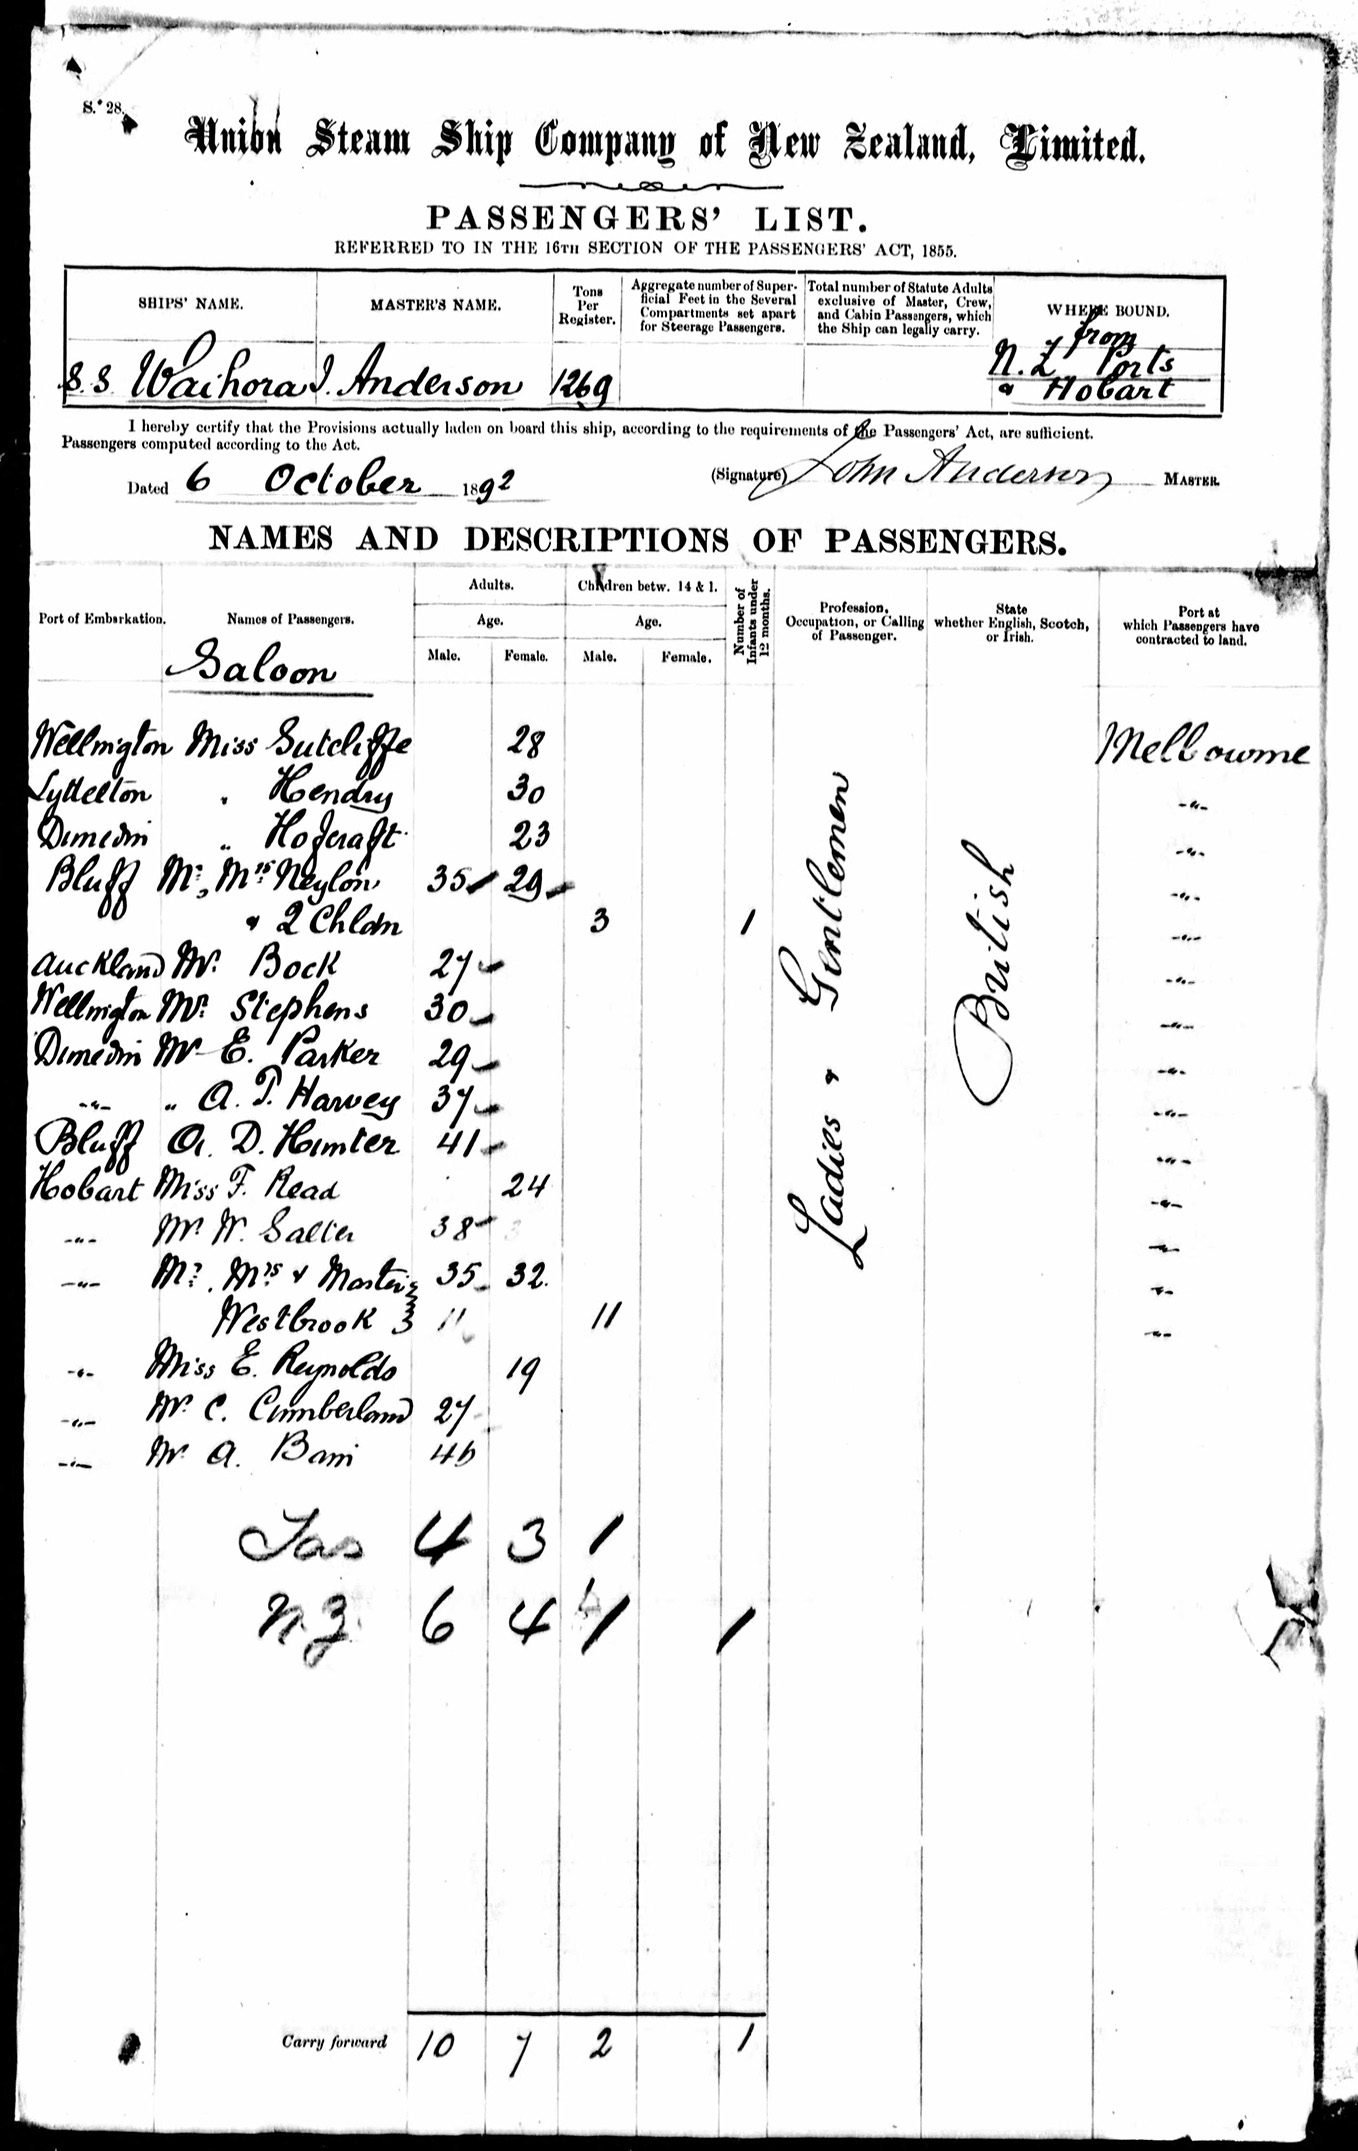 S. 28.
Union Steam Ship Company of New Zealand, Limited.
PASSENGERS' LIST.
REFERRED TO IN THE 16TH SECTION OF THE PASSENGERS' ACT, 1855.
SHIPS' NAME. MASTER'S NAME. Tons Per Register. Aggregate number of Superficial Feet in the Several Compartments set apart for Steerage Passengers. Total number of Statute Adults exclusive of Master, Crew, and Cabin Passengers, which the Ship can legally carry. WHERE BOUND.
from
S.S. Waihora J. Anderson 1269 N.Z Ports
& Hobart
I hereby certify that the Provisions actually laden on board this ship, according to the requirements of the Passengers' Act, are sufficient.
Passengers computed according to the Act.
Dated 6 October 1892 (Signature) John Anderson MASTER.
NAMES AND DESCRIPTIONS OF PASSENGERS.
Port of Embarkation. Names of Passengers. Adults. Age. Male. Female. Children betw. 14 & 1. Age. Male. Female. Number of Infants under 12 months. Profession, Occupation, or Calling of Passenger. State whether English, Scotch, or Irish. Port at which Passengers have contracted to land.
Saloon
Wellington Miss Sutcliffe 28 Melbourne
Lyttelton " Hendry 30 -"-
Dunedin " Hofcraft 23 -"-
Bluff Mr, Mrs Neylon 35 29 -"-
& 2 Chldn 3 1 -"-
Auckland Mr. Bock 27 -"-
Wellington Mr. Stephens 30 -"-
Dunedin Mr E. Parker 29 -"-
-"- " A. T. Harvey 37 -"-
Bluff A. D. Hunter 41 -"-
Hobart Miss F. Read 24 -"-
-"- Mr. W. Salter 38 -"-
-"- Mr. Mrs & Master 35 32 -"-
Westbrook 11 11 -"-
-"- Miss E. Reynolds 19
-"- Mr. C. Cumberland 27
-"- Mr A. Bain 46
Ladies & Gentlemen
British
Tas 4 3 1
N.Z. 6 4 1 1
Carry forward 10 7 2 1